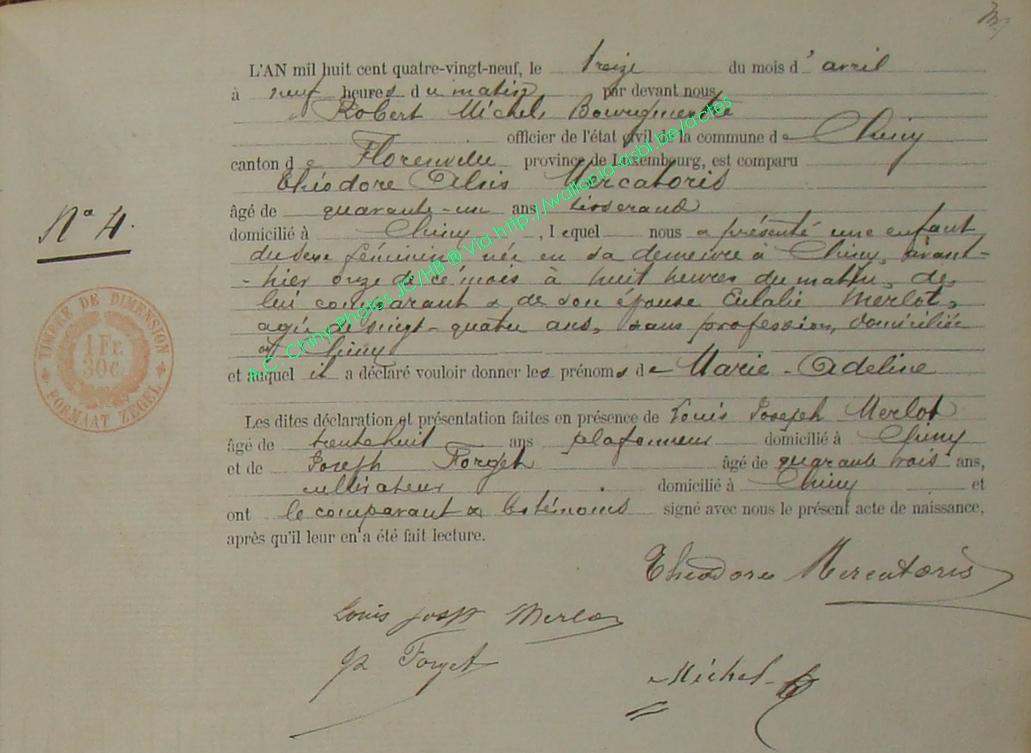 N° 4.
TIMBRE DE DIMENSION
1 Fr.
30 c.
FORMAAT ZEGEL
L'AN mil huit cent quatre-vingt-neuf, le treize du mois d' avril
à neuf heures du matin par devant nous
Robert Michel, Bourgmestre
officier de l'état civil de la commune de Chiny
canton de Florenville province de Luxembourg, est comparu
Théodore Alois Mercatoris
âgé de quarante-un ans tisserand
domicilié à Chiny, lequel nous a présenté une enfant
du sexe féminin, née en sa demeure à Chiny, avant-
-hier onze de ce mois à huit heures du matin, de
lui comparant & de son épouse Eulalie Merlot,
agée de vingt-quatre ans, sans profession, domiciliée
à Chiny
et auquel il a déclaré vouloir donner les prénoms de Marie-Adeline
Les dites déclaration et présentation faites en présence de Louis Joseph Merlot
âgé de trente huit ans plafonneur domicilié à Chiny
et de Joseph Forget âgé de quarante trois ans,
cultivateur domicilié à Chiny et
ont le comparant & les témoins signé avec nous le présent acte de naissance,
après qu'il leur en a été fait lecture.
Théodore Mercatoris
Louis Merlot
Forget
Michel
A.C. Chiny Photos JC/HB ® Via http://wallonia-asbl.be/actes